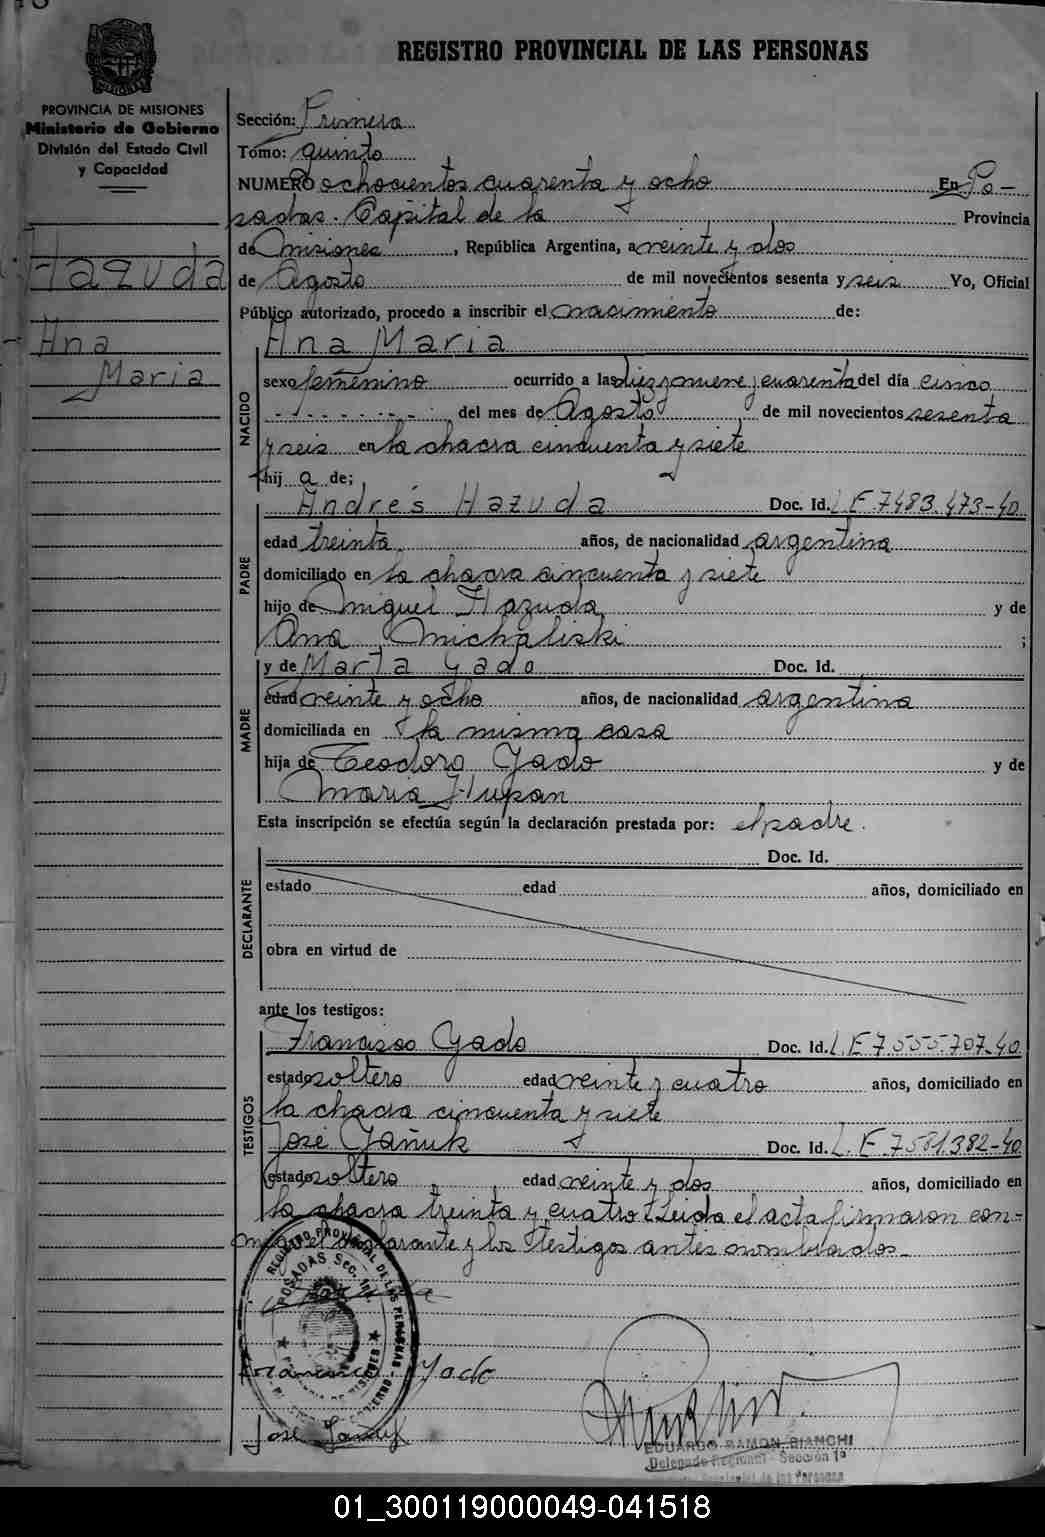 REGISTRO PROVINCIAL DE LAS PERSONAS
PROVINCIA DE MISIONES
Ministerio de Gobierno
División del Estado Civil
y Capacidad
Hazuda
Ana
Maria
Sección: Primera
Tomo: quinto
NUMERO ochocientos cuarenta y ocho En Po-
sadas. Capital de la Provincia
de misiones, República Argentina, a veinte y dos
de Agosto de mil novecientos sesenta y seis Yo, Oficial
Público autorizado, procedo a inscribir el nacimiento de:
Ana Maria
NACIDO
sexo femenino ocurrido a las diez y nueve y cuarenta del día cinco
del mes de Agosto de mil novecientos sesenta
y seis en la chacra cincuenta y siete
hij a de;
PADRE
Andrés Hazuda Doc. Id. L.E. 7483.473-40
edad treinta años, de nacionalidad argentina
domiciliado en la chacra cincuenta y siete
hijo de miguel Hazuda y de
Ana michaliski ;
MADRE
y de Marta Gado Doc. Id.
edad veinte y ocho años, de nacionalidad argentina
domiciliada en la misma casa
hija de Teodoro Gado y de
Maria Hupan
Esta inscripción se efectúa según la declaración prestada por: el padre.
DECLARANTE
Doc. Id.
estado edad años, domiciliado en
obra en virtud de
ante los testigos:
TESTIGOS
Francisco Gado Doc. Id. L.E 7.555.707-40
estado soltero edad veinte y cuatro años, domiciliado en
la chacra cincuenta y siete
José Gañuk Doc. Id. L.E. 7581.382-40
estado soltero edad veinte y dos años, domiciliado en
la chacra treinta y cuatro Leida el acta firmaron con-
migo el declarante y los testigos antes nombrados-
REGISTRO PROVINCIAL DE LAS PERSONAS
POSADAS Sec. 1ra.
Gado
José
EDUARDO RAMON BIANCHI
Delegado Regional - Sección 1ª
Provincial de las Personas
01_300119000049-041518